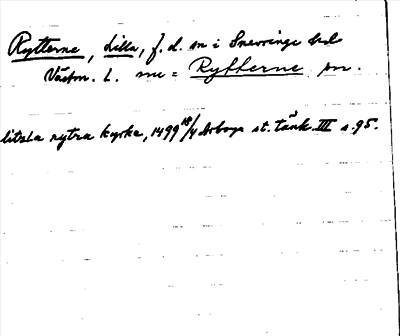 Rytterne, Lilla, f. d. sn i Snevringe hd
Västm. L. nu = Rytterne sn.
litzla rytra kyrka, 1499 18/4 Arboga st. tänk. III s. 95.